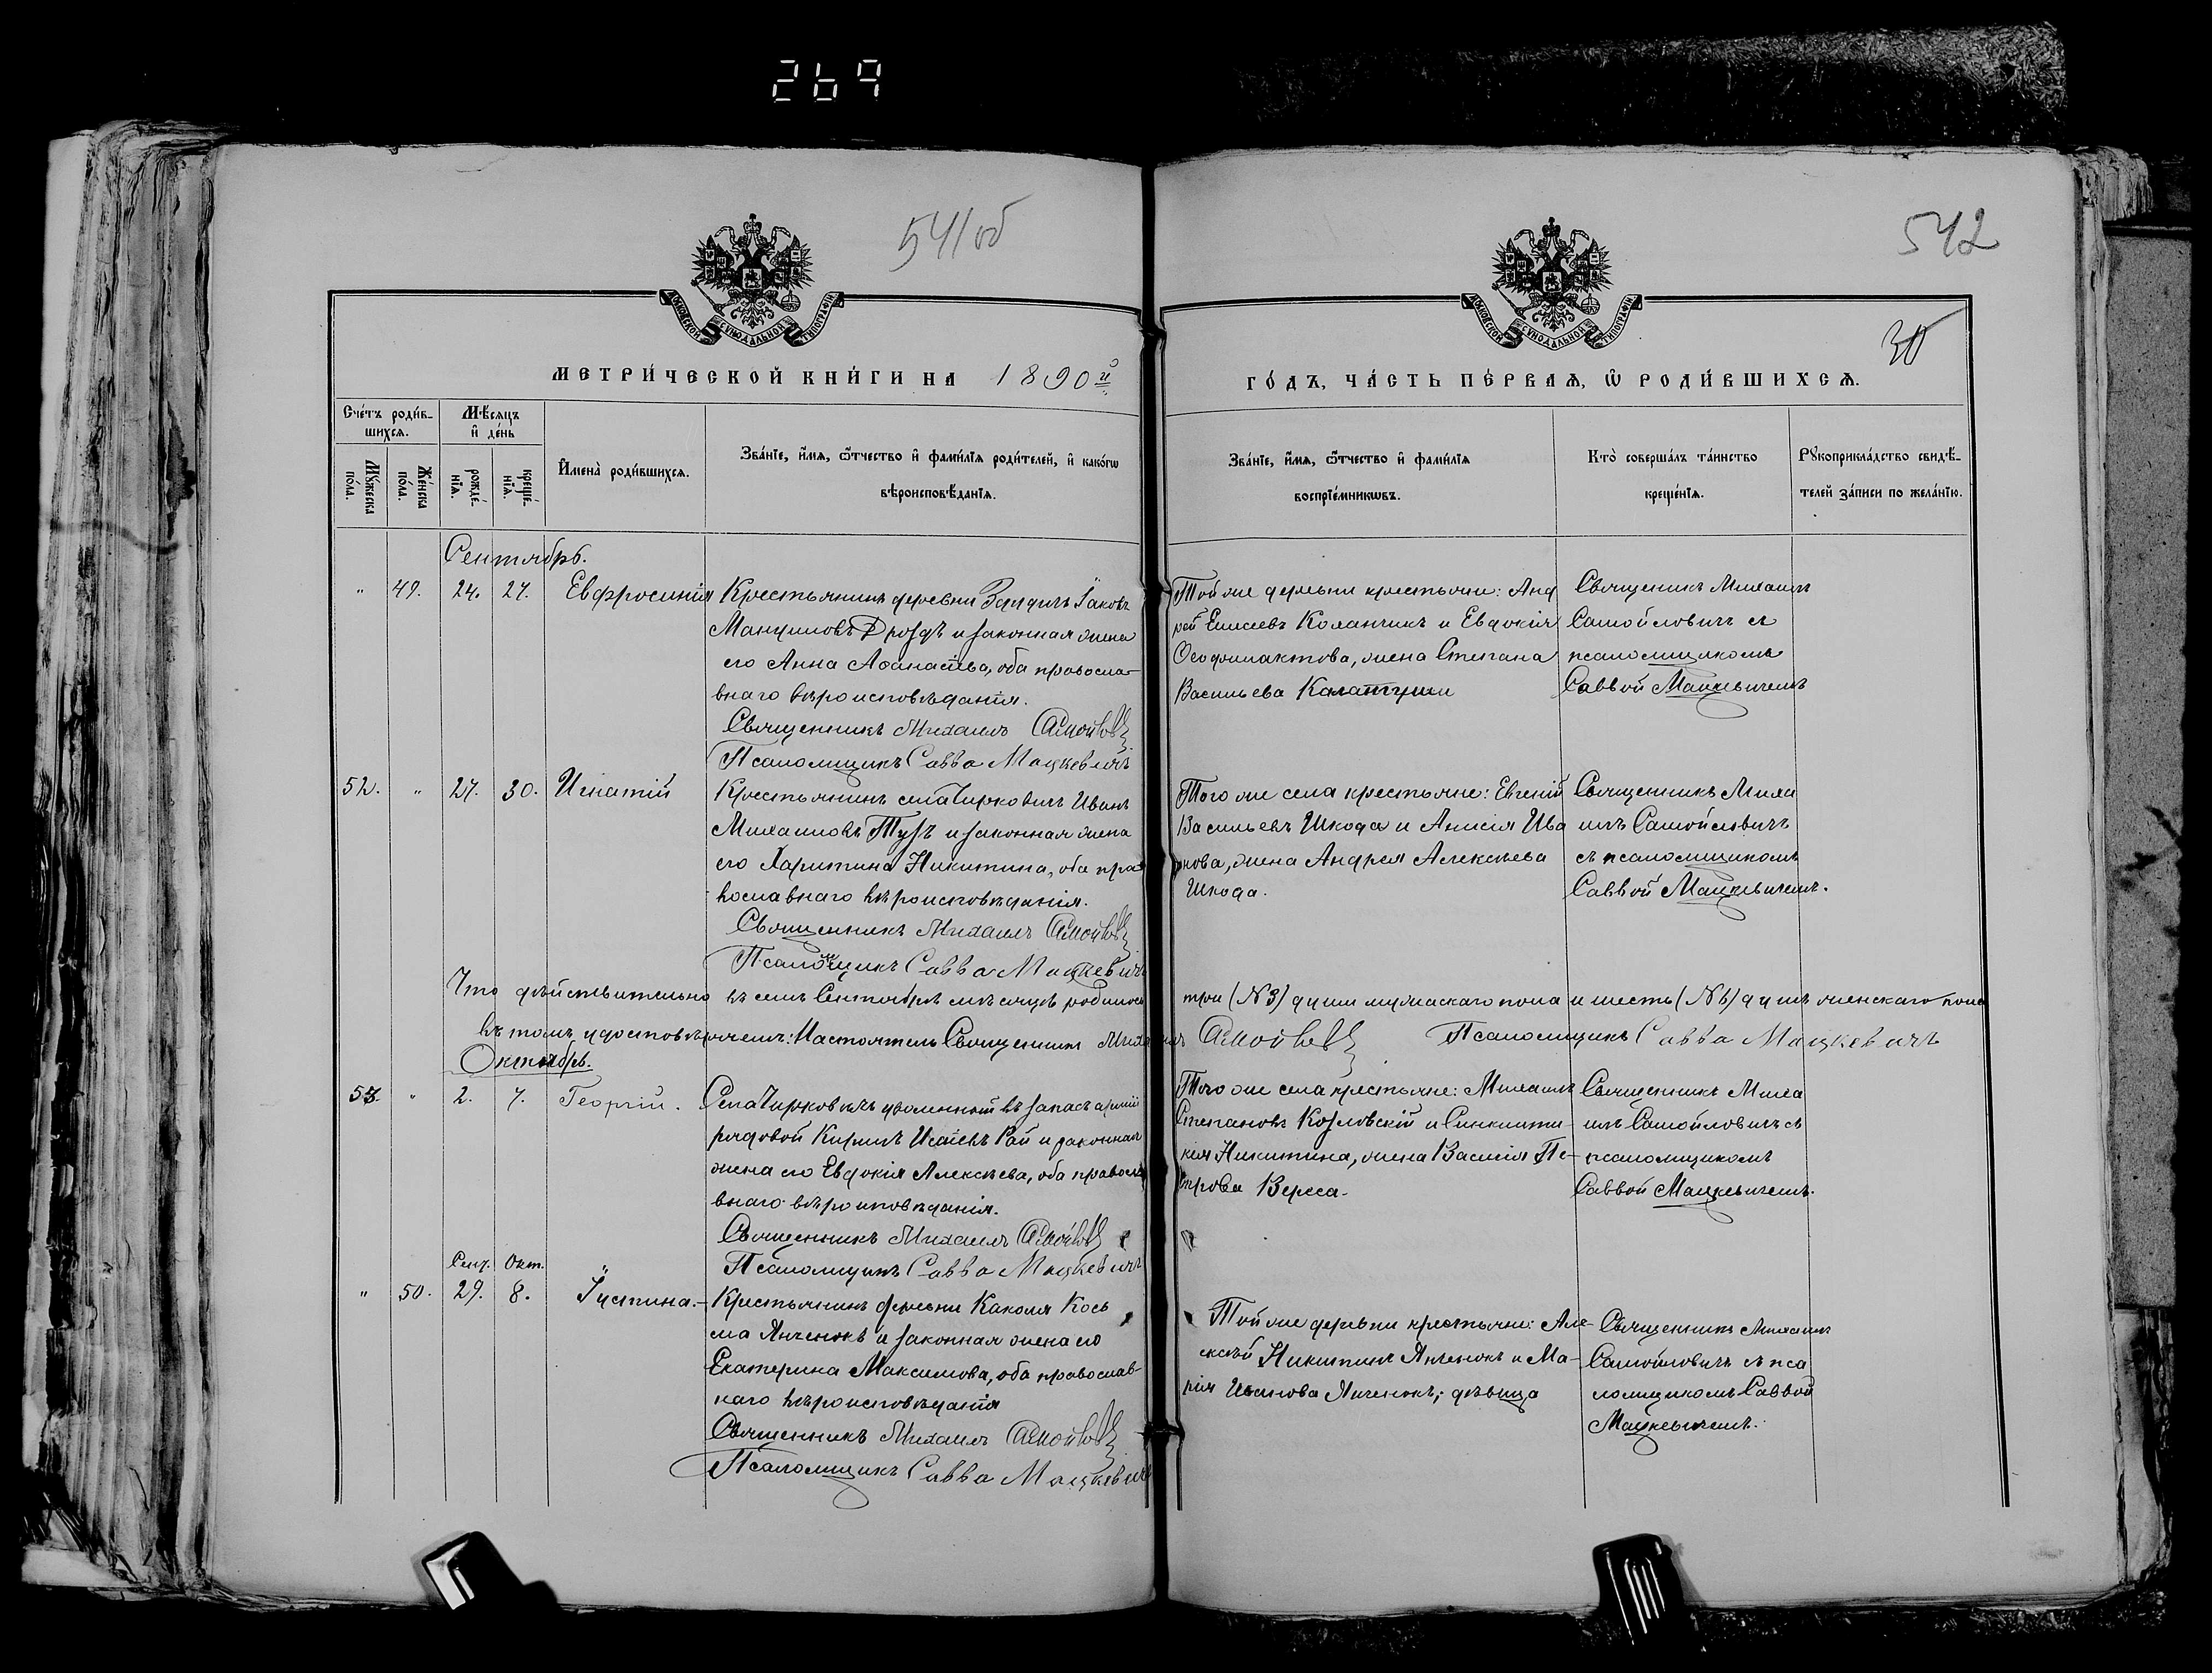 269
541об
542
30
МОСКОВСКОЙ СѴНОДАЛЬНОЙ ТИПОГРАФІИ
МОСКОВСКОЙ СѴНОДАЛЬНОЙ ТИПОГРАФІИ
МЕТРИ́ЧЕСКОЙ КНИ́ГИ НА 1890й
ГО́ДЪ, ЧА́СТЬ ПЕ́РВАѦ, Ѽ РОДИ́ВШИХСѦ.
Сче́тъ роди́в-
шихсѧ.
Мꙋ́жеска
по́ла.
Же́нска
по́ла.
Мѣ́сѧцъ
и҆ де́нь
рожде́-
нїѧ.
креще́-
нїѧ.
И҆мена̀ роди́вшихсѧ.
Зва́нїе, и҆́мѧ, ѻ҆́тчество и҆ фами́лїѧ роди́телей, и҆ како́гѡ
вѣроисповѣ́данїѧ.
Зва́нїе, и҆́мѧ, ѻ҆́тчество и҆ фами́лїѧ
воспрїе́мникѡвъ.
Кто̀ соверша́лъ та́инство
креще́нїѧ.
Рꙋкоприкла́дство свидѣ́-
телей за́писи по жела́нїю.
Сентябрь.
" 49. 24. 27. Евфросинія
Крестьянинъ деревни Іаковъ
Дроздъ и законная жена
его Анна Аѳанасіева, оба правосла-
внаго вѣроисповѣданія.
Священникъ Михаилъ Самойлов
Псаломщикъ Савва Мацкевичъ
Той же деревни крестьяне: Анд
рей Елисеевъ Коланчикъ и Евдокія
Ѳеофилактова, жена Степана
Васильева
Священикъ Михаилъ
Самойловичъ съ
псаломщикомъ
Саввой Мацкевичемъ
52. " 27. 30. Игнатій
Крестьянинъ села Чирковичъ Иванъ
Михаиловъ Тузъ и законная жена
его Харитина Никитина, оба пра
вославнаго вѣроисповѣданія.
Священникъ Михаилъ Самойлов
Псаломщикъ Савва Мацкевичъ
Того же села крестьяне: Евгеній
Васильевъ Шкода и Анисія Ива
нова, жена Андрея Алексѣева
Шкода.
Священникъ Миха
илъ Самойловичъ
съ псаломщикомъ
Саввой Мацкевичемъ.
Что дѣйствительно въ семъ Сентябрѣ мѣсяцѣ родилось три (№ 3) души мужескаго пола и шесть (№ 6) душъ женскаго пола
въ томъ удостовѣряемъ: Настоятель Священникъ Михаилъ Самойлов Псаломщикъ Савва Мацкевичъ
Октябрь.
53. " 2. 7. Георгій.
Села Чирковичъ уволенный въ запасъ арміи
рядовой Кирилъ Исаіевъ Рай и законная
жена его Евдокія Алексѣева, оба правосла
внаго вѣроисповѣданія.
Священникъ Михаилъ Самойлов
Псаломщикъ Савва Мацкевичъ
Того же села крестьяне: Михаилъ
Степановъ Козловскій и Синклити-
кія Никитина, жена Василія Пе-
трова Вереса.
Священникъ Миха
илъ Самойловичъ съ
псаломщикомъ
Саввой Мацкевичемъ.
Сент. Окт.
" 50. 29. 8. Іустина.
Крестьянинъ деревни Какаля Кось
ма Янченокъ и законная жена его
Екатерина Максимова, оба православ-
наго вѣроисповѣданія
Священникъ Михаилъ Самойлов
Псаломщикъ Савва Мацкевичъ
Той же деревни крестьяне: Але-
ксѣй Никитинъ Янченокъ и Ма-
рія Иванова Янченокъ, дѣвица
Священникъ Михаилъ
Самойловичъ съ пса
ломщикомъ Саввой
Мацкевичемъ.